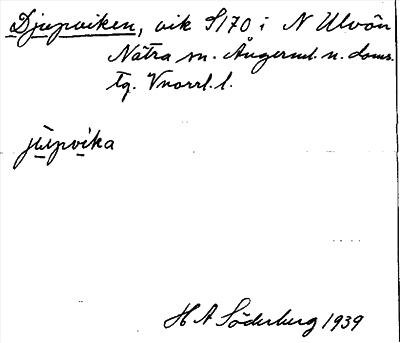 Djupviken, vik S170 i N Ulvön
Nätra sn. Ångerml. n. doms.
tg. Vnorrl. l.
jùpvika
H A Söderberg 1939